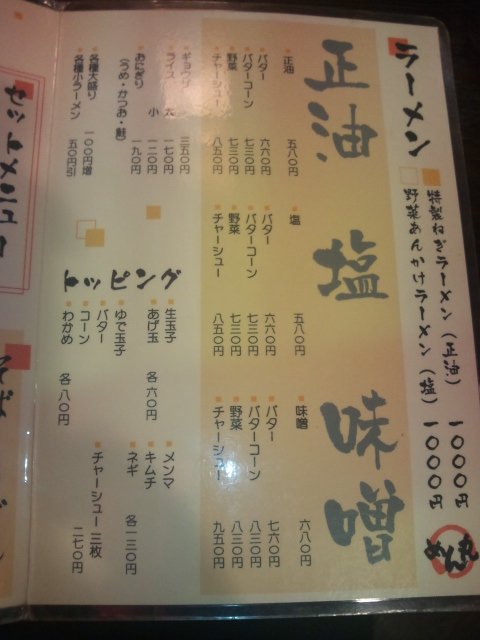 ラーメン
特製ねぎラーメン（正油） 一〇〇〇円
野菜あんかけラーメン（塩） 一〇〇〇円
めん丸
正油
正油 五八〇円
バター 六六〇円
バターコーン 七三〇円
野菜 七三〇円
チャーシュー 八五〇円
塩
塩 五八〇円
バター 六六〇円
バターコーン 七三〇円
野菜 七三〇円
チャーシュー 八五〇円
味噌
味噌 六八〇円
バター 七六〇円
バターコーン 八三〇円
野菜 八三〇円
チャーシュー 九五〇円
ギョウザ 三五〇円
ライス 大 一七〇円
小 一二〇円
おにぎり 一九〇円
（うめ・かつお・鮭）
各種大盛り 一〇〇円増
各種小ラーメン 五〇円引
トッピング
生玉子
あげ玉 各 六〇円
ゆで玉子
バター
コーン
わかめ 各 八〇円
メンマ
キムチ
ネギ 各一三〇円
チャーシュー 三枚 二七〇円
セットメニュー
そば